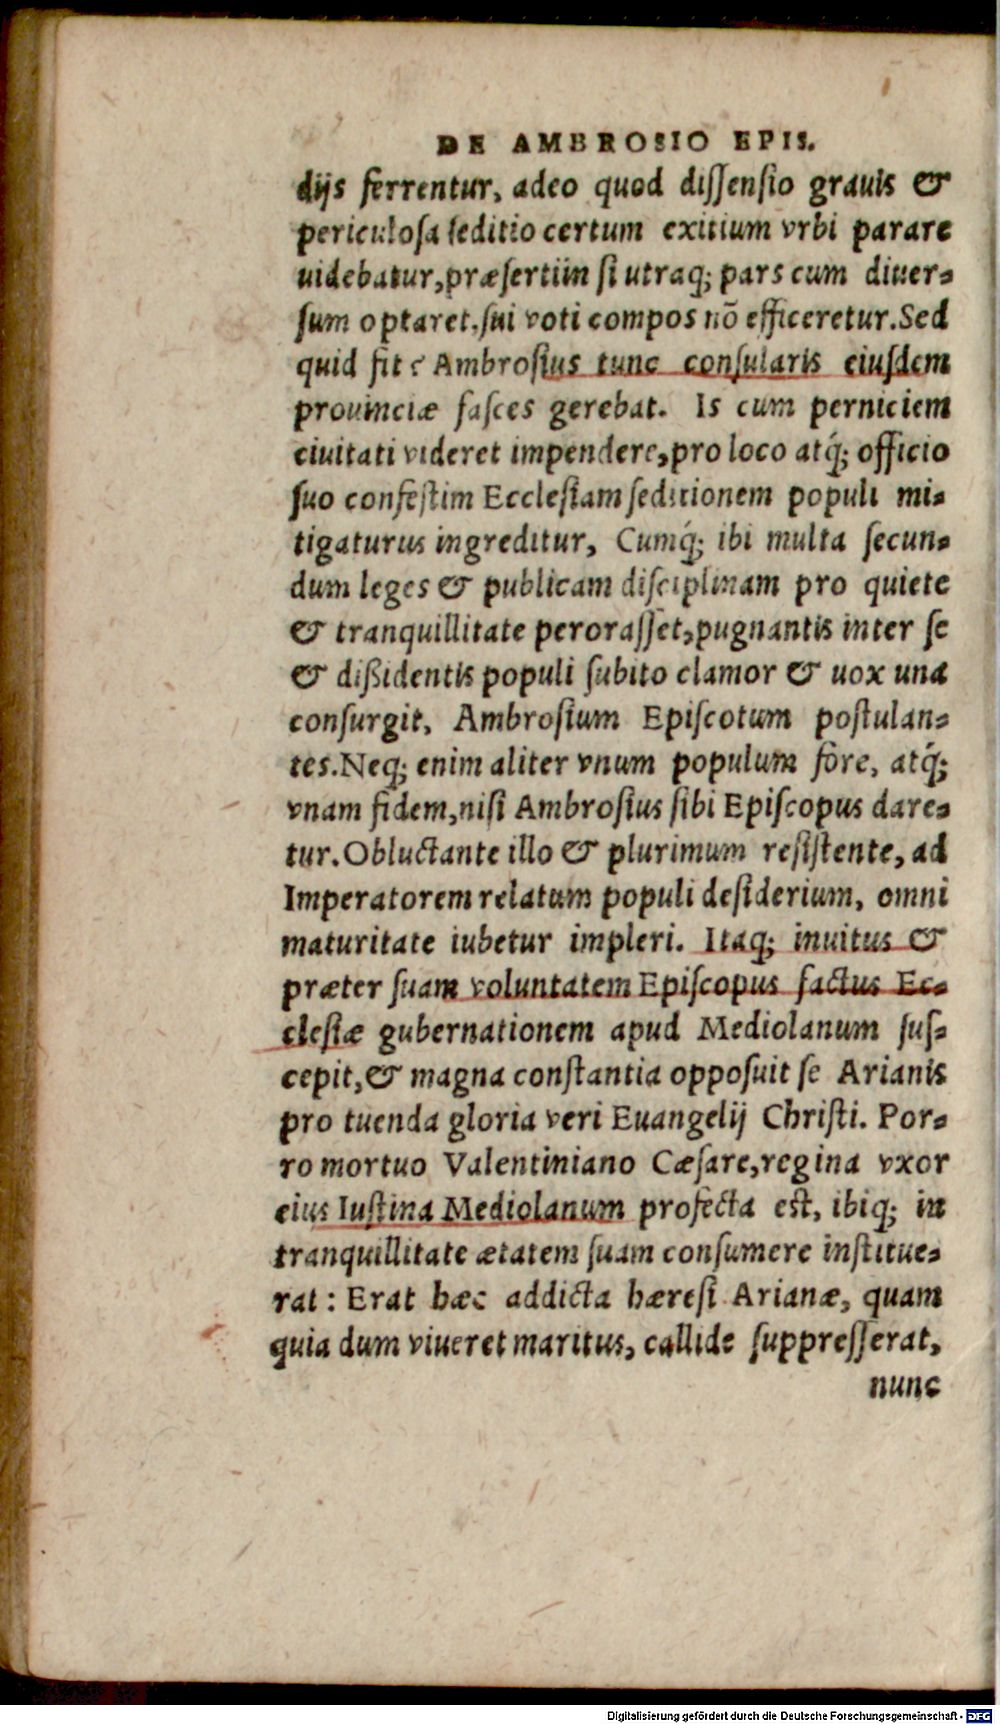 DE AMBROSIO EPIS.
dijs ferrentur, adeo quod dissensio grauis &
periculosa seditio certum exitium vrbi parare
uidebatur, præsertim si utraq; pars cum diuer-
sum optaret, sui voti compos nō efficeretur. Sed
quid fit? Ambrosius tunc consularis eiusdem
prouinciæ fasces gerebat. Is cum perniciem
ciuitati videret impendere, pro loco atq́; officio
suo confestim Ecclesiam seditionem populi mi-
tigaturus ingreditur, Cumq́; ibi multa secun-
dum leges & publicam disciplinam pro quiete
& tranquillitate perorasset, pugnantis inter se
& dißidentis populi subito clamor & uox una
consurgit, Ambrosium Episcotum postulan-
tes. Neq; enim aliter vnum populum fore, atq́;
vnam fidem, nisi Ambrosius sibi Episcopus dare-
tur. Obluctante illo & plurimum resistente, ad
Imperatorem relatum populi desiderium, omni
maturitate iubetur impleri. Itaq; inuitus &
præter suam voluntatem Episcopus factus Ec-
clesiæ gubernationem apud Mediolanum sus-
cepit, & magna constantia opposuit se Arianis
pro tuenda gloria veri Euangelij Christi. Por-
ro mortuo Valentiniano Cæsare, regina vxor
eius Iustina Mediolanum profecta est, ibiq; in
tranquillitate ætatem suam consumere institue-
rat: Erat hæc addicta hæresi Arianæ, quam
quia dum viueret maritus, callide suppresserat,
nunc
Digitalisierung gefördert durch die Deutsche Forschungsgemeinschaft - DFG